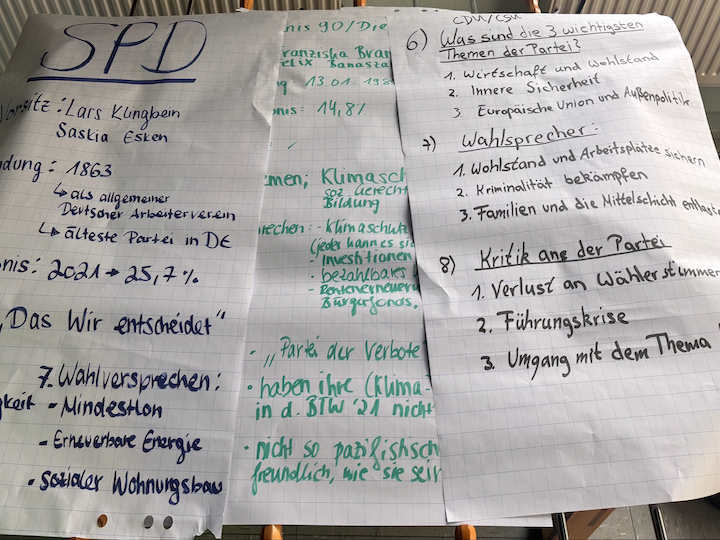 SPD
Vorsitz: Lars Klingbein
Saskia Esken
dung: 1863
↳ als allgemeiner
Deutscher Arbeiterverein
↳ älteste Partei in DE
nis: 2021 → 25,7 %
„Das Wir entscheidet"
7. Wahlversprechen:
gkeit - Mindestlon
- Erneuerbare Energie
- sozialer Wohnungsbau
nis 90/Die
ranziska Bran
elix Banasza
g 13.01.198
nis: 14,8%
men; Klimasch
soz. Gerecht
Bildung
rechen: - Klimaschutz
(jeder kann es sic
- Investitionen
- bezahlbares
- Rentenerneueru
Bürgerfonds,
- „Partei der Verbote
• haben ihre (Klima-
in d. BTW '21 nicht
• nicht so pazifistisch
freundlich, wie sie sein
CDU/CSU
6) Was sund die 3 wichtigsten
Themen der Partei?
1. Wirtschaft und Wohlstand
2. Innere Sicherheit
3. Europäische Union und Außenpolitik
7) Wahlsprecher:
1. Wohlstand und Arbeitsplätze sichern
2. Kriminalität bekämpfen
3. Familien und die Mittelschicht entlaste
8) Kritik ans der Partei
1. Verlust an Wählerstimmen
2. Führungskrise
3. Umgang mit dem Thema